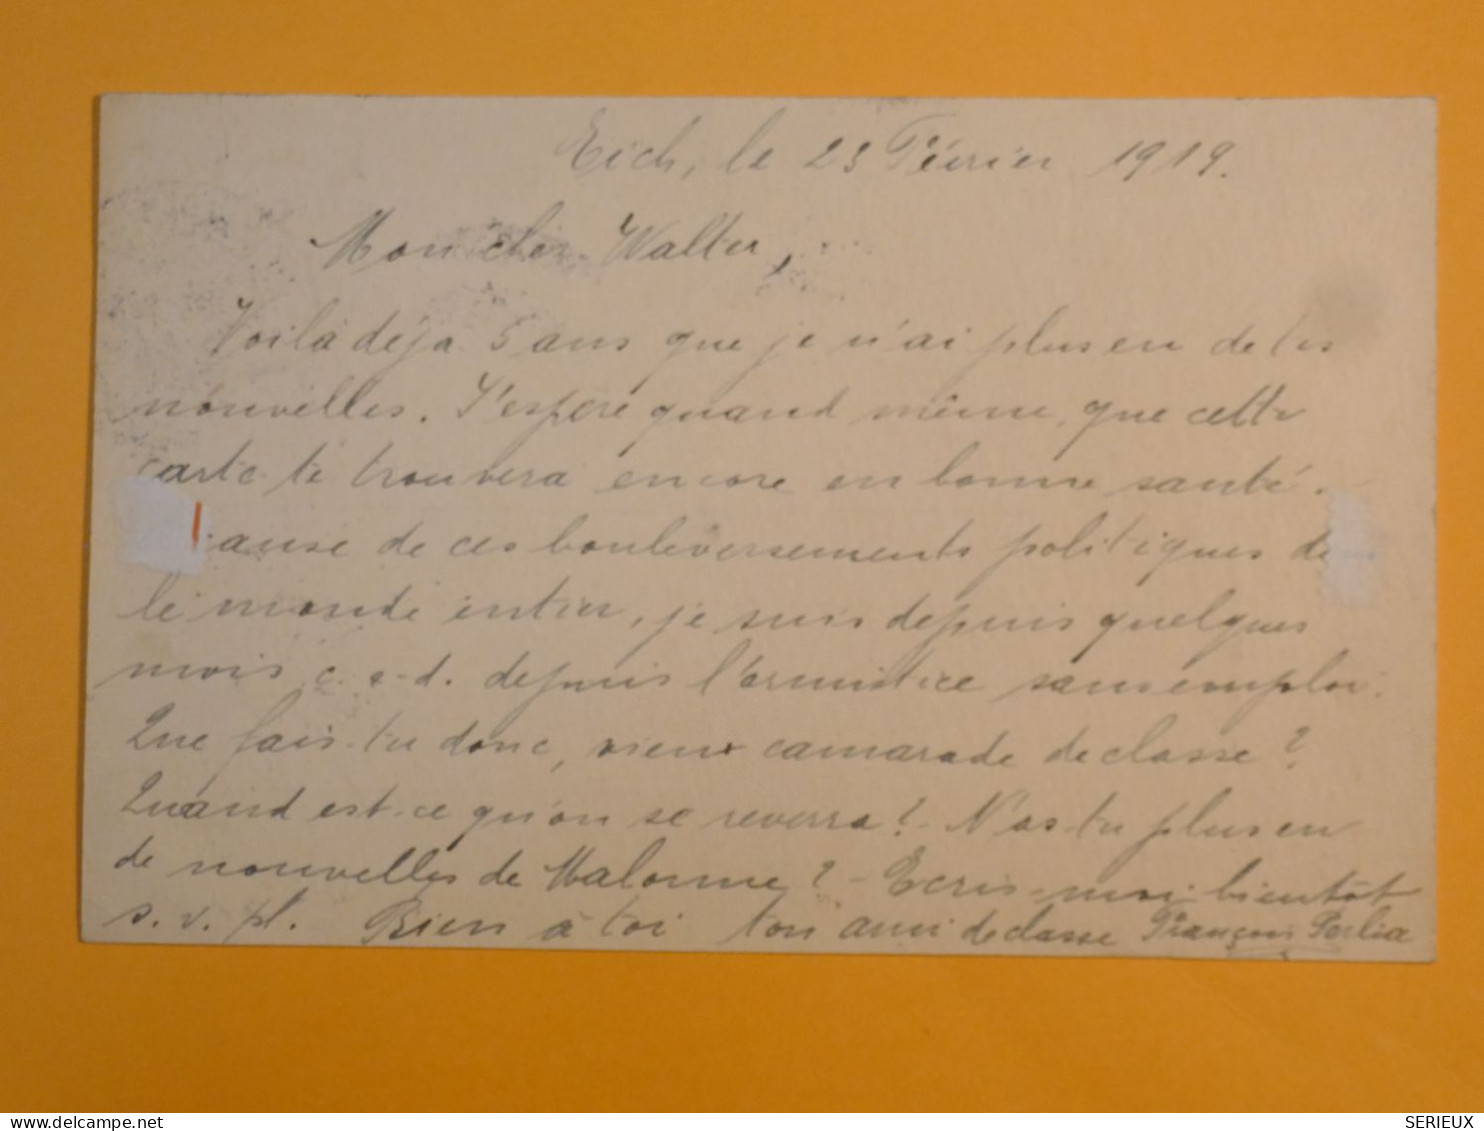 Eich, le 23 Février 1919.
Mon cher Walter,
Voilà déja 5 ans que je n'ai plus eu de tes
nouvelles. J'espère quand même, que cette
carte te trouvera encore en bonne santé.
cause de ces bouleversements politiques de
le monde entier, je suis depuis quelques
mois c. a-d. depuis l'armistice sans emploi.
Que fais-tu donc, vieux camarade de classe?
Quand est-ce qu'on se reverra? - N'as tu plus eu
de nouvelles de Malonne? - Ecris-moi bientôt
s. v. pl. Bien à toi ton ami de classe François Perlia
delcampe.net
SERIEUX